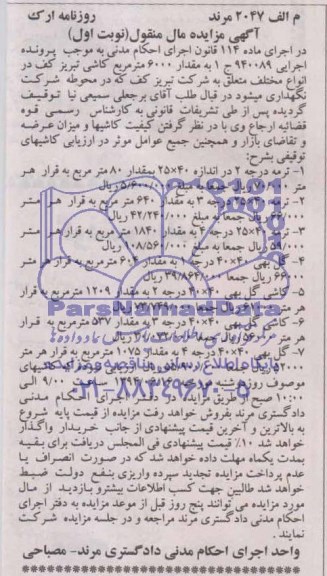 م الف ۲۰۴۷ مرند روزنامه ارک
آگهی مزایده مال منقول(نوبت اول)
در اجرای ماده ۱۱۴ قانون اجرای احکام مدنی به موجب پرونده
اجرایی ۹۴۰۰۸۹ ج ۱ به مقدار ۶۰۰۰ مترمربع کاشی تبریز کف در
انواع مختلف متعلق به شرکت تبریز کف که در محوطه شرکت
نگهداری میشود در قبال طلب آقای برجعلی سمیعی نیا توقیف
گردیده پس از طی تشریفات قانونی به کارشناس رسمی قوه
قضائیه ارجاع وی با در نظر گرفتن کیفیت کاشیها و میزان عرضه
و تقاضای بازار و همچنین جمیع عوامل موثر در ارزیابی کاشیهای
توقیفی بشرح:
۱- ترمه درجه ۲ در اندازه ۴۰×۲۵ بمقدار ۸۰ متر مربع به قرار هر
متر ریال جمعا به مبلغ ۵/۶۰۰/۰۰۰ ریال
۲- ترمه ۴۰×۲۵ درجه ۳ به مقدار ۶۴۰ متر مربع به قرار هر متر
۶۶/۰۰۰ ریال جمعا به مبلغ ۴۲/۲۴۰/۰۰۰ ریال
۳- ترمه ۴۰×۲۵ درجه ۴ به مقدار ۱۸۴۰ متر مربع به قرار هر متر
۵۹/۰۰۰ ریال جمعا به مبلغ ۱۰۸/۵۶۰/۰۰۰ ریال
۴- گل بهی ۴۰×۴۰ درجه ۱ به مقدار ۶۰۴ متر مربع به قرار هر متر
۶۶/۰۰۰ ریال جمعا ۳۹/۸۶۴/۰۰۰ ریال
۵- کاشی گل بهی ۴۰×۴۰ درجه ۲ به مقدار ۱۲۰۹ مترمربع به قرار
هر متر ریال جمعا ریال
۶- کاشی گل بهی ۴۰×۴۰ درجه ۳ به مقدار ۵۳۷ مترمربع به قرار
هر متر ریال جمعا ریال
۷- گل بهی ۴۰×۴۰ درجه ۴ به مقدار ۱۰۷۵ مترمربع به قرار هر متر
ریال
موصوف روز ۱۳۹۴ ساعت ۹/۰۰ الی
۱۰:۰۰ صبح از طریق مزایده در دفتر اجرای احکام مدنی
دادگستری مرند بفروش خواهد رفت مزایده از قیمت پایه شروع
به بالاترین و آخرین قیمت پیشنهادی از جانب خریدار واگذار
خواهد شد ۱۰٪ قیمت پیشنهادی فی المجلس دریافت برای بقیه
بمدت یکماه مهلت داده خواهد شد که در صورت انصراف یا
عدم پرداخت مزایده تجدید سپرده واریزی بنفع دولت ضبط
خواهد شد طالبین جهت کسب اطلاعات بیشترو بازدید از مال
مورد مزایده می توانند پنج روز قبل از موعد مزایده به دفتر اجرای
احکام مدنی دادگستری مرند مراجعه و در جلسه مزایده شرکت
نمایند .
واحد اجرای احکام مدنی دادگستری مرند- مصباحی
ParsNamadData
پایگاه اطلاع رسانی مناقصه و مزایده
۰۲۱-۸۸۳۴۹۶۷۰-۵